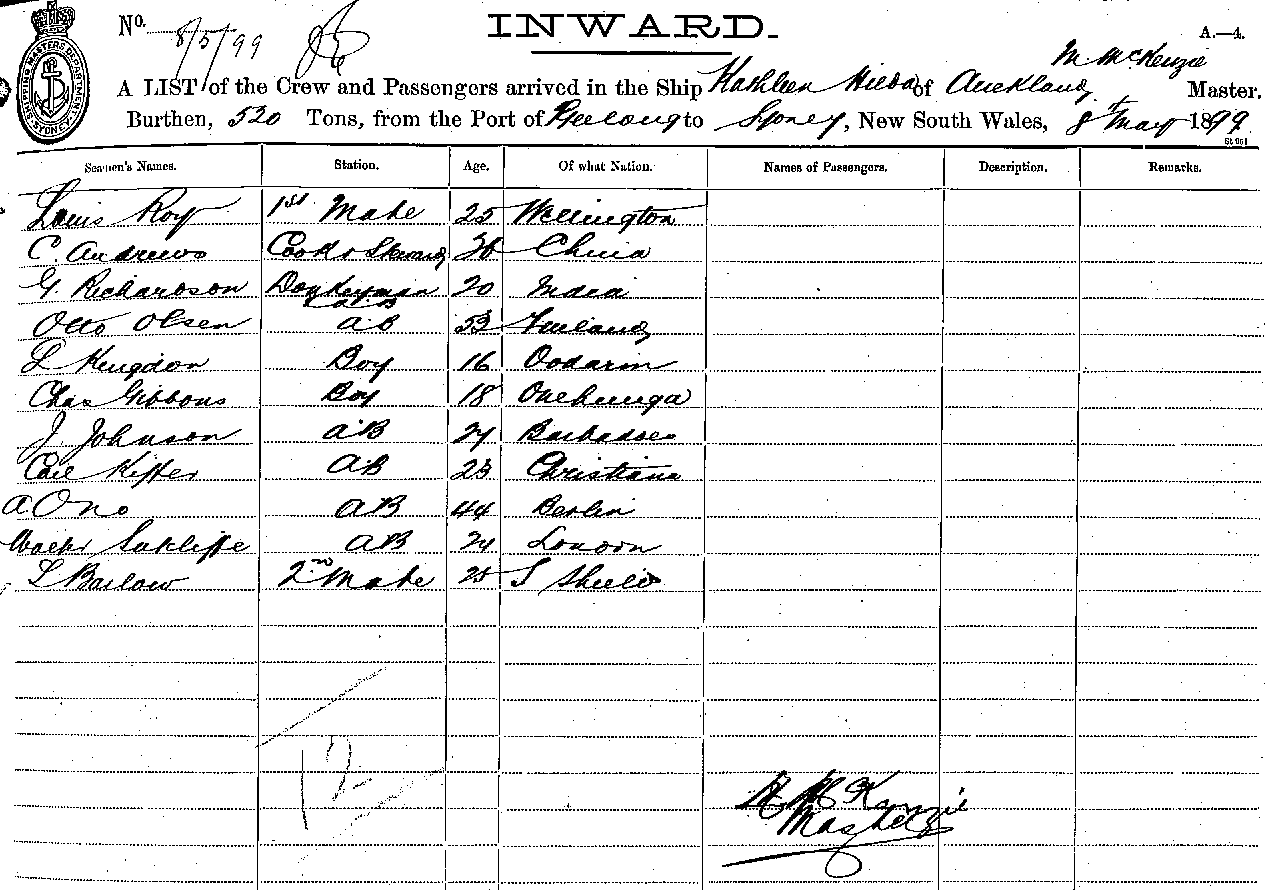 No. 8/5/99 INWARD. A.—4.
M McKenzie
A LIST of the Crew and Passengers arrived in the Ship Kathleen Hilda of Auckland, Master.
Burthen, 520 Tons, from the Port of Geelong to Sydney, New South Wales, 8th May 1899
SHIPPING MASTERS DEPARTMENT SYDNEY
Seamen's Names. Station. Age. Of what Nation. Names of Passengers. Description. Remarks.
Louis Roy 1st Mate 25 Wellington
C. Andrews Cook & Steward 36 China
G. Richardson Donkeyman 20 India
Otto Olsen AB 53 Finland
L Boy 16
Chas Gibbons Boy 18 Onehunga
J. Johnson AB Barbadoes
AB 23 Christiana
A Ono AB 44 Berlin
Sutcliffe AB London
L Barlow 2nd Mate 25 S Shields
12
McKenzie
Master